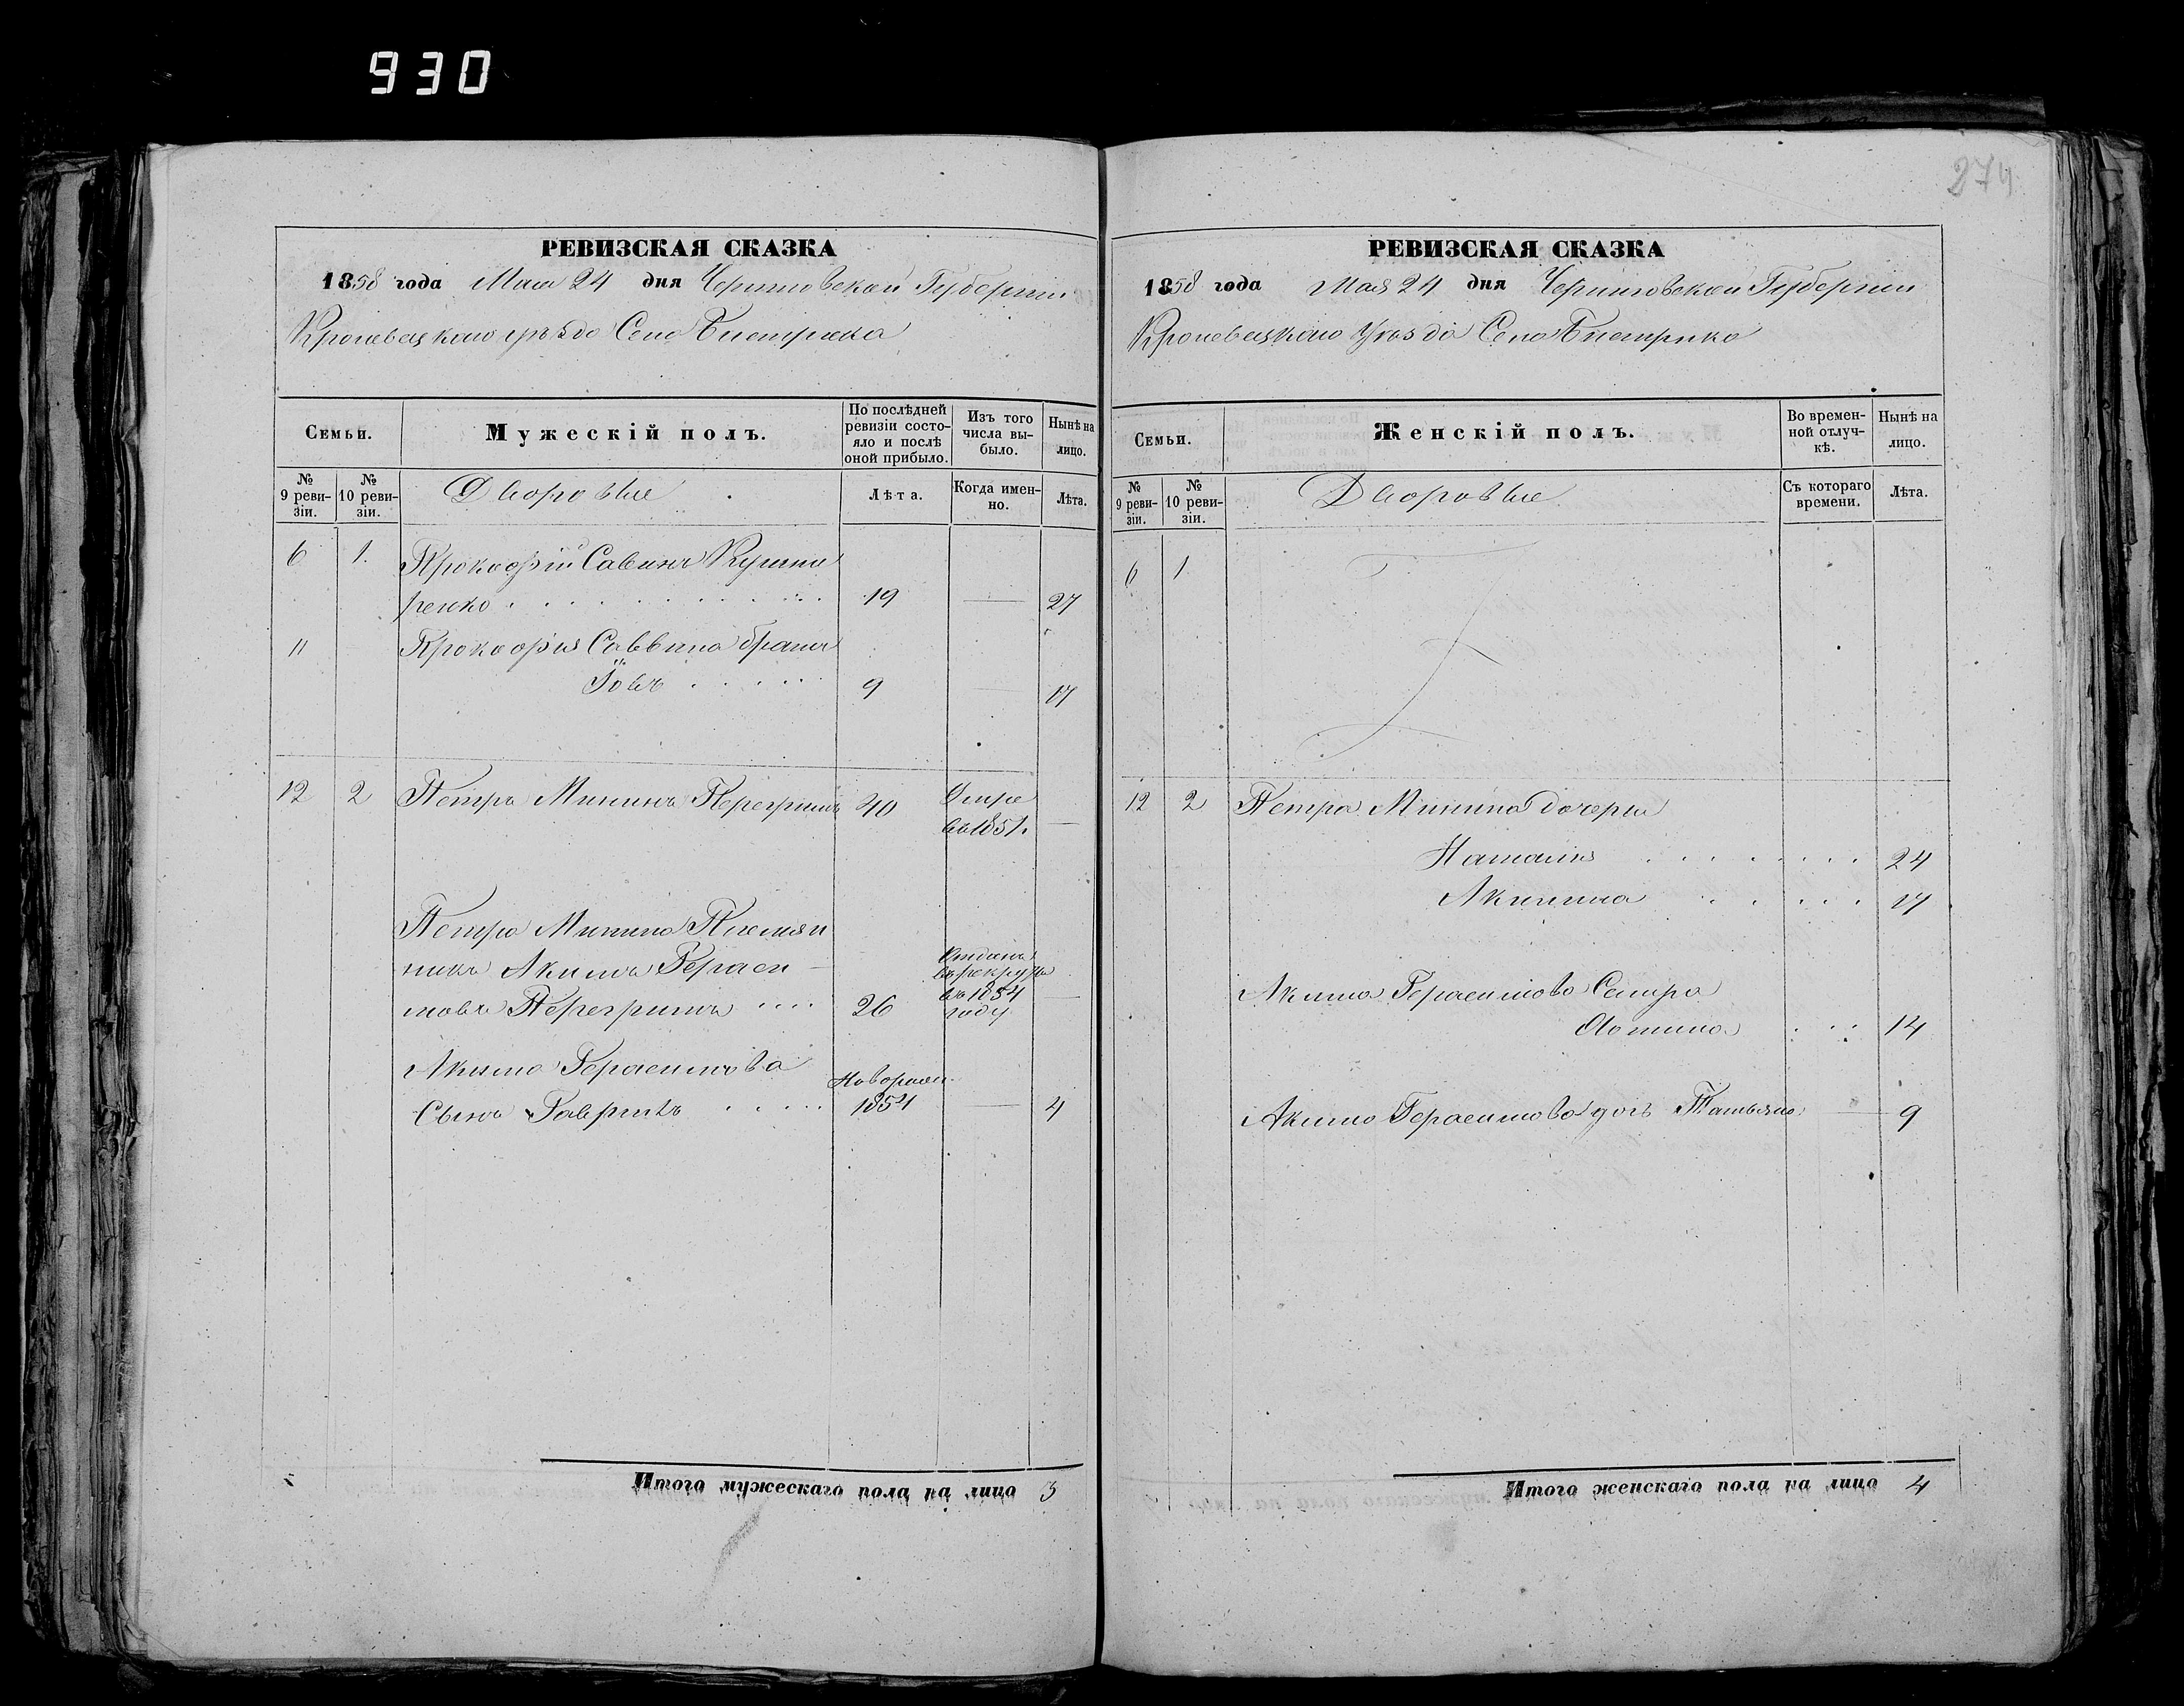 930
274
РЕВИЗСКАЯ СКАЗКА
1858 года Мая 24 дня Черниговской Губернии
Кролевецкаго уѣзда Село Быстрика
Семьи.
Мужескій полъ.
По послѣдней ревизіи состояло и послѣ оной прибыло.
Изъ того числа выбыло.
Нынѣ на лицо.
№ 9 ревизіи.
№ 10 ревизіи.
Дворовые
Лѣта.
Когда именно.
Лѣта.
6 1. Прокофій Савинъ Кушни
ренко 19 — 27
11 Прокофія Саввина братъ
Іовъ 9 — 17
12 2 Петръ Мининъ Перегринъ 40 Умре
въ 1851. —
Петра Минина Племян
никъ Акимъ Гераси-
мовъ Перегринъ 26 Отданъ въ рекруты въ 1854 году —
Акима Герасимова
Сынъ Гаврилъ Новорожд. 1854 — 4
Итого мужескаго пола на лицо 3
РЕВИЗСКАЯ СКАЗКА
1858 года Мая 24 дня Черниговской Губернии
Кролевецкаго Уѣзда Село Быстрика
Семьи.
Женскій полъ.
Во временной отлучкѣ.
Нынѣ на лицо.
№ 9 ревизіи.
№ 10 ревизіи.
Дворовые
Съ котораго времени.
Лѣта.
6 1
12 2 Петра Минина дочери
Наталия 24
Акилина 17
Акима Герасимова Сестра
14
Акима Герасимова дочь Татьяна — 9
Итого женскаго пола на лицо 4